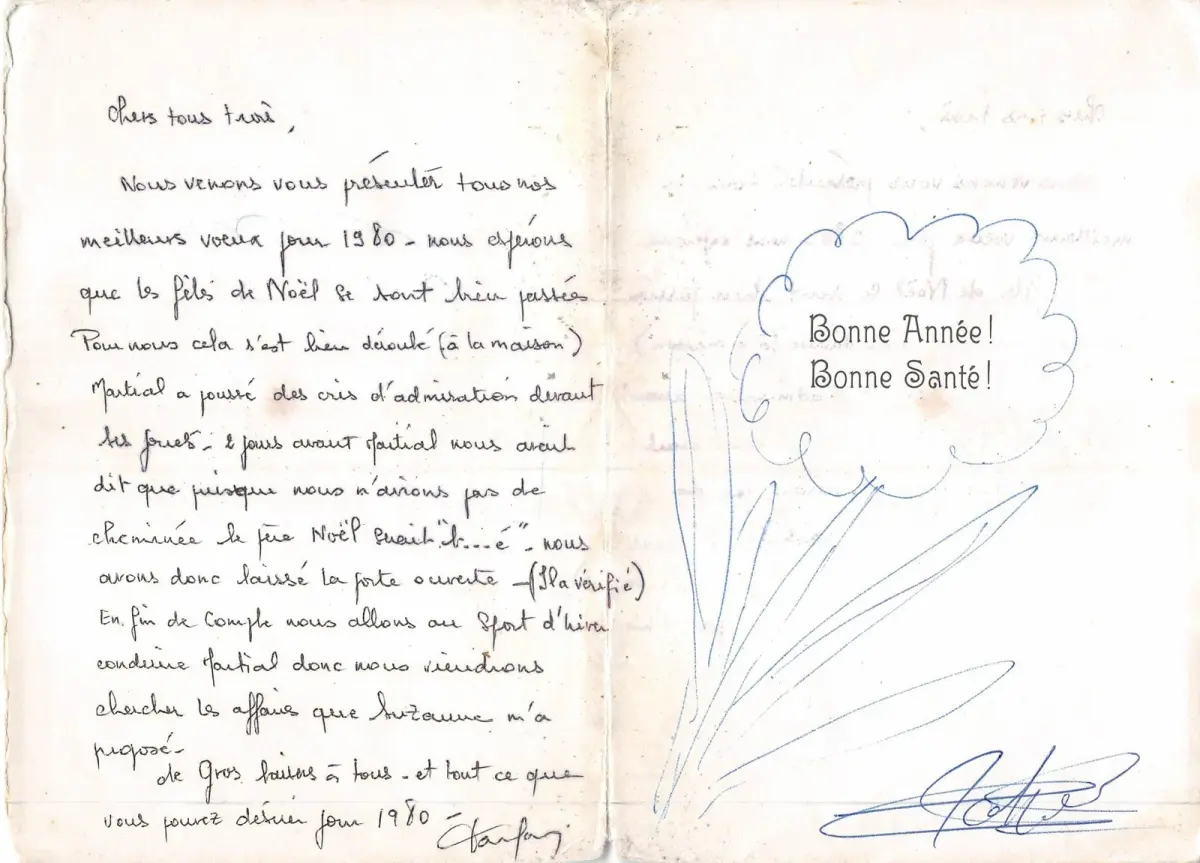 Chers tous trois,
Nous venons vous présenter tous nos
meilleurs voeux pour 1980 - nous espérons
que les fêtes de Noël se sont bien passées
Pour nous cela s'est bien déroulé (à la maison)
Martial a poussé des cris d'admiration devant
ses jouets - 2 jours avant Martial nous avait
dit que puisque nous n'avions pas de
cheminée le père Noël serait "b...é" - nous
avons donc laissé la porte ouverte - (Il a vérifié)
En fin de compte nous allons au Sport d'hiver
conduire Martial donc nous viendrons
chercher les affaires que Suzanne m'a
proposé -
de Gros baisers à tous - et tout ce que
vous pouvez désirer pour 1980 -
Bonne Année!
Bonne Santé!